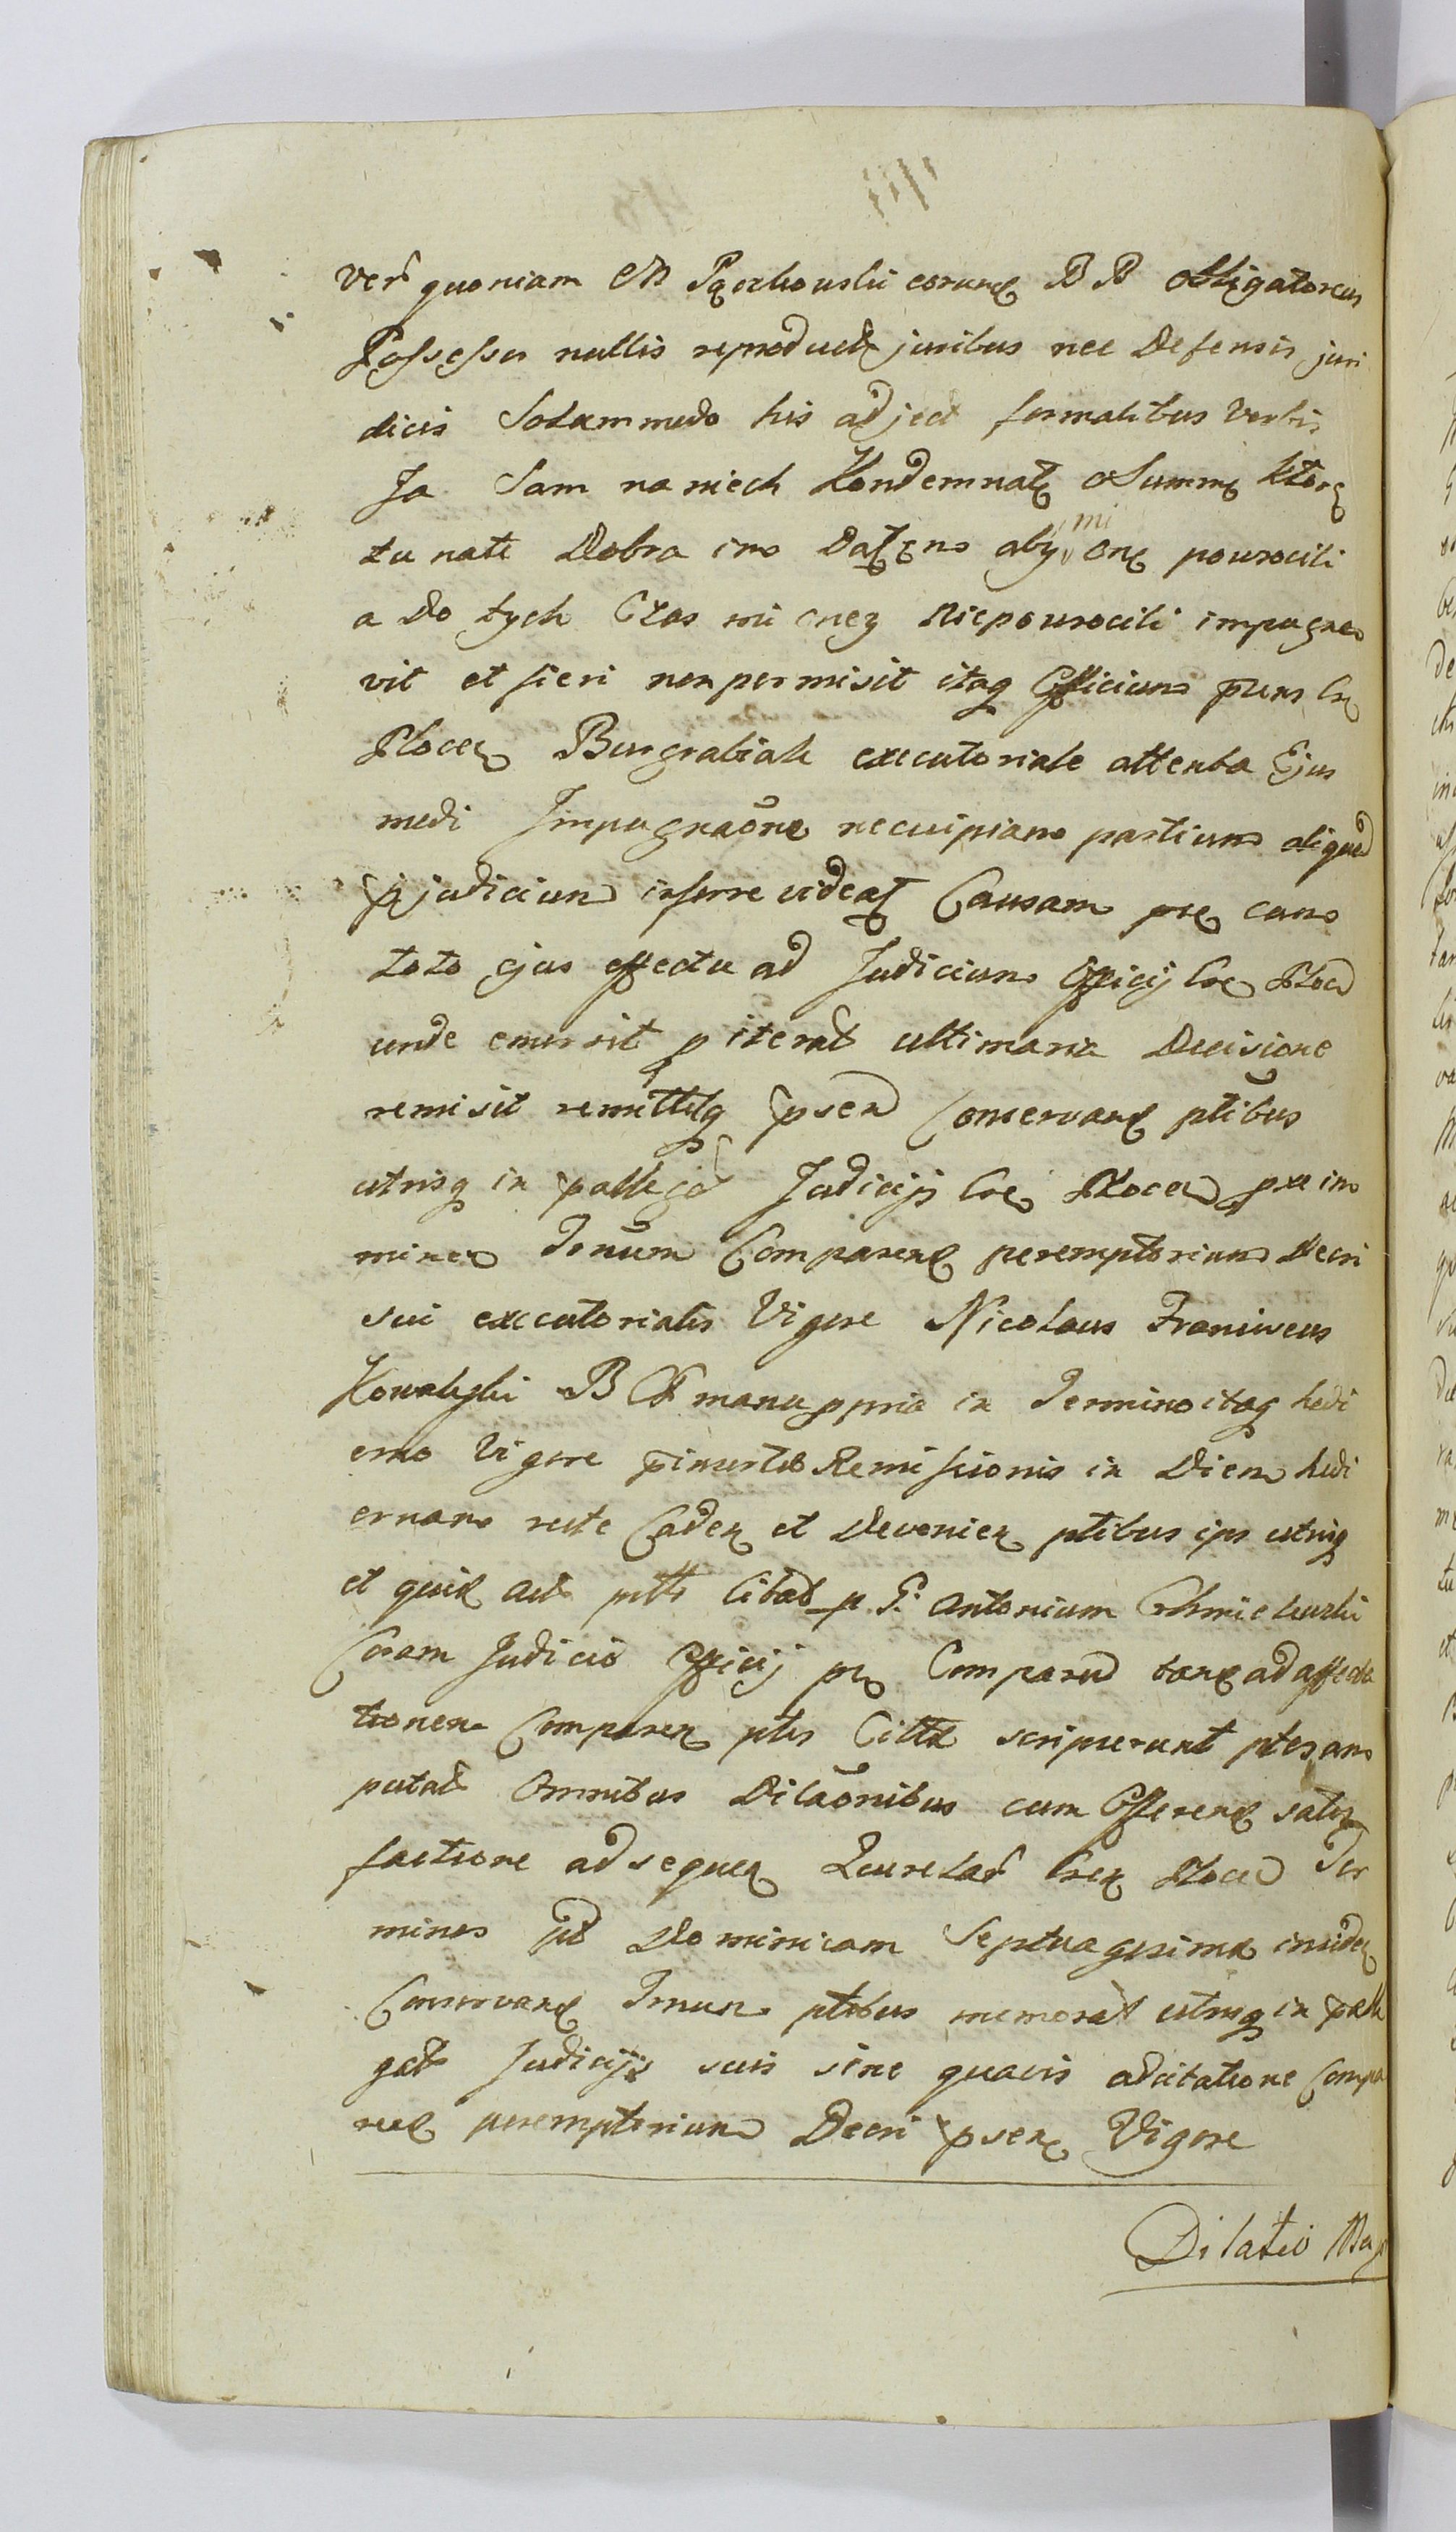 Vero quoniam M Pączkowski eorund B B obligatorius
Possessor nullis reproduct juribus nec Defensis juri
dicis Solummodo his adject formalibus Verbis
Ja Sam na niech Kondemnatę o Summę ktorą
tu na te Dobra im Dałem aby mi onę powrocili
a do tych Czas mi oney niepowrocili impugna
vit et fieri non permisit itaq Officium pns Cre
Plocen Burgrabiale executoriale attenta Ejus
modi Impugnaone ne cuipiam partium aliquod
pjudicium inferre videat Causam pre cum
toto ejus effectu ad Judicium Officij Cre Ploc
unde emersit p iterat ultimaria Decisione
remisit remittitq psen Conservan ptibus
utrisq in pallegat Judicijs Cre Plocen pxe im
minen Tnum Comparen peremptorium Decri
sui executorialis Vigore Nicolaus Franciscus
Kowalski B C P manu ppria in Termino itaq hodi
erno Vigore pinserto Remissionis in Diem hodi
ernam recte Caden et Devenien ptibus ips utrisq
et quid act ptte Citat p G. Antonium Chmielewski
Coram Judicio Officij pn Comparen tand ad affecta
tionem Comparen ptis Citte scripserunt ptes am
putat Omnibus Dilaonibus cum Offeren satis
factione ad sequen Querelar Cren Plocen Ter
minos pt Dominicam Septuagesimae inciden
Conservan Tnum ptibus memorat utrisq in palle
gat Judicijs suis sine quavis adcitatione Compa
ren peremptorium Decri psen Vigore
Dilatio